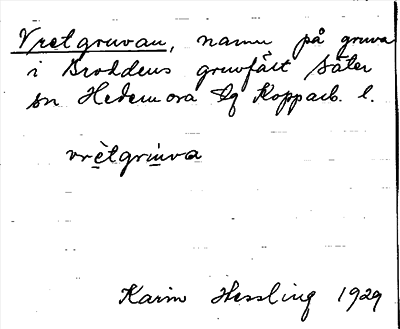 Vretgruvan, namn på gruva
i Broddens gruvfält Säter
sn Hedemora tg Kopparb. l.
vrètgruva
Karin Hessling 1929